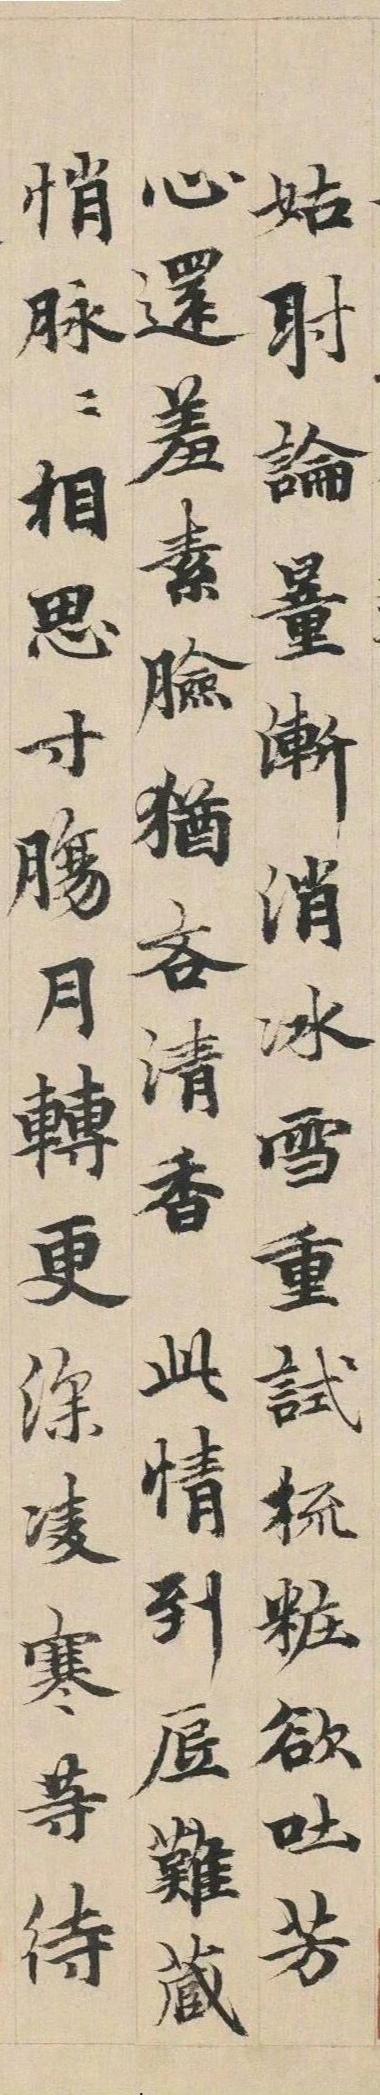 姑射論量漸消冰雪重試梳粧欲吐芳
心還羞素臉猶吝清香 此情到底難藏
悄脉〻相思寸腸月轉更深凌寒等待